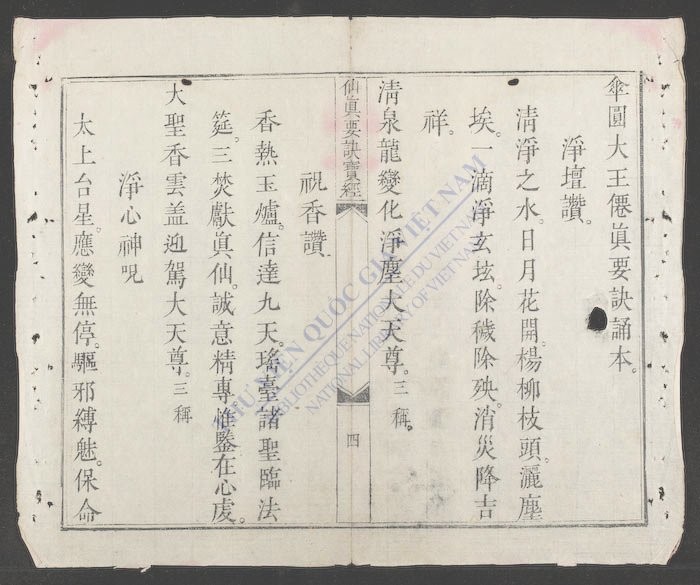 傘圓大王僊眞要訣誦本。
淨壇讚。
清淨之水。日月花開。楊柳枝頭。灑塵
埃。一滴淨玄坛。除穢除殃。消災降吉
祥。
清泉龍變化淨塵大天尊。三稱。
仙眞要訣寶經
四
祝香讚
香熱玉爐。信達九天。瑤臺諸聖臨法
筵。三焚獻眞仙。誠意精專。惟鑒在心虔。
大聖香雲盖迎駕大天尊。三稱
淨心神呪
太上台星。應變無停。驅邪縛魅。保命
THƯ VIỆN QUỐC GIA VIỆT NAM
BIBLIOTHÈQUE NATIONALE DU VIETNAM
NATIONAL LIBRARY OF VIETNAM